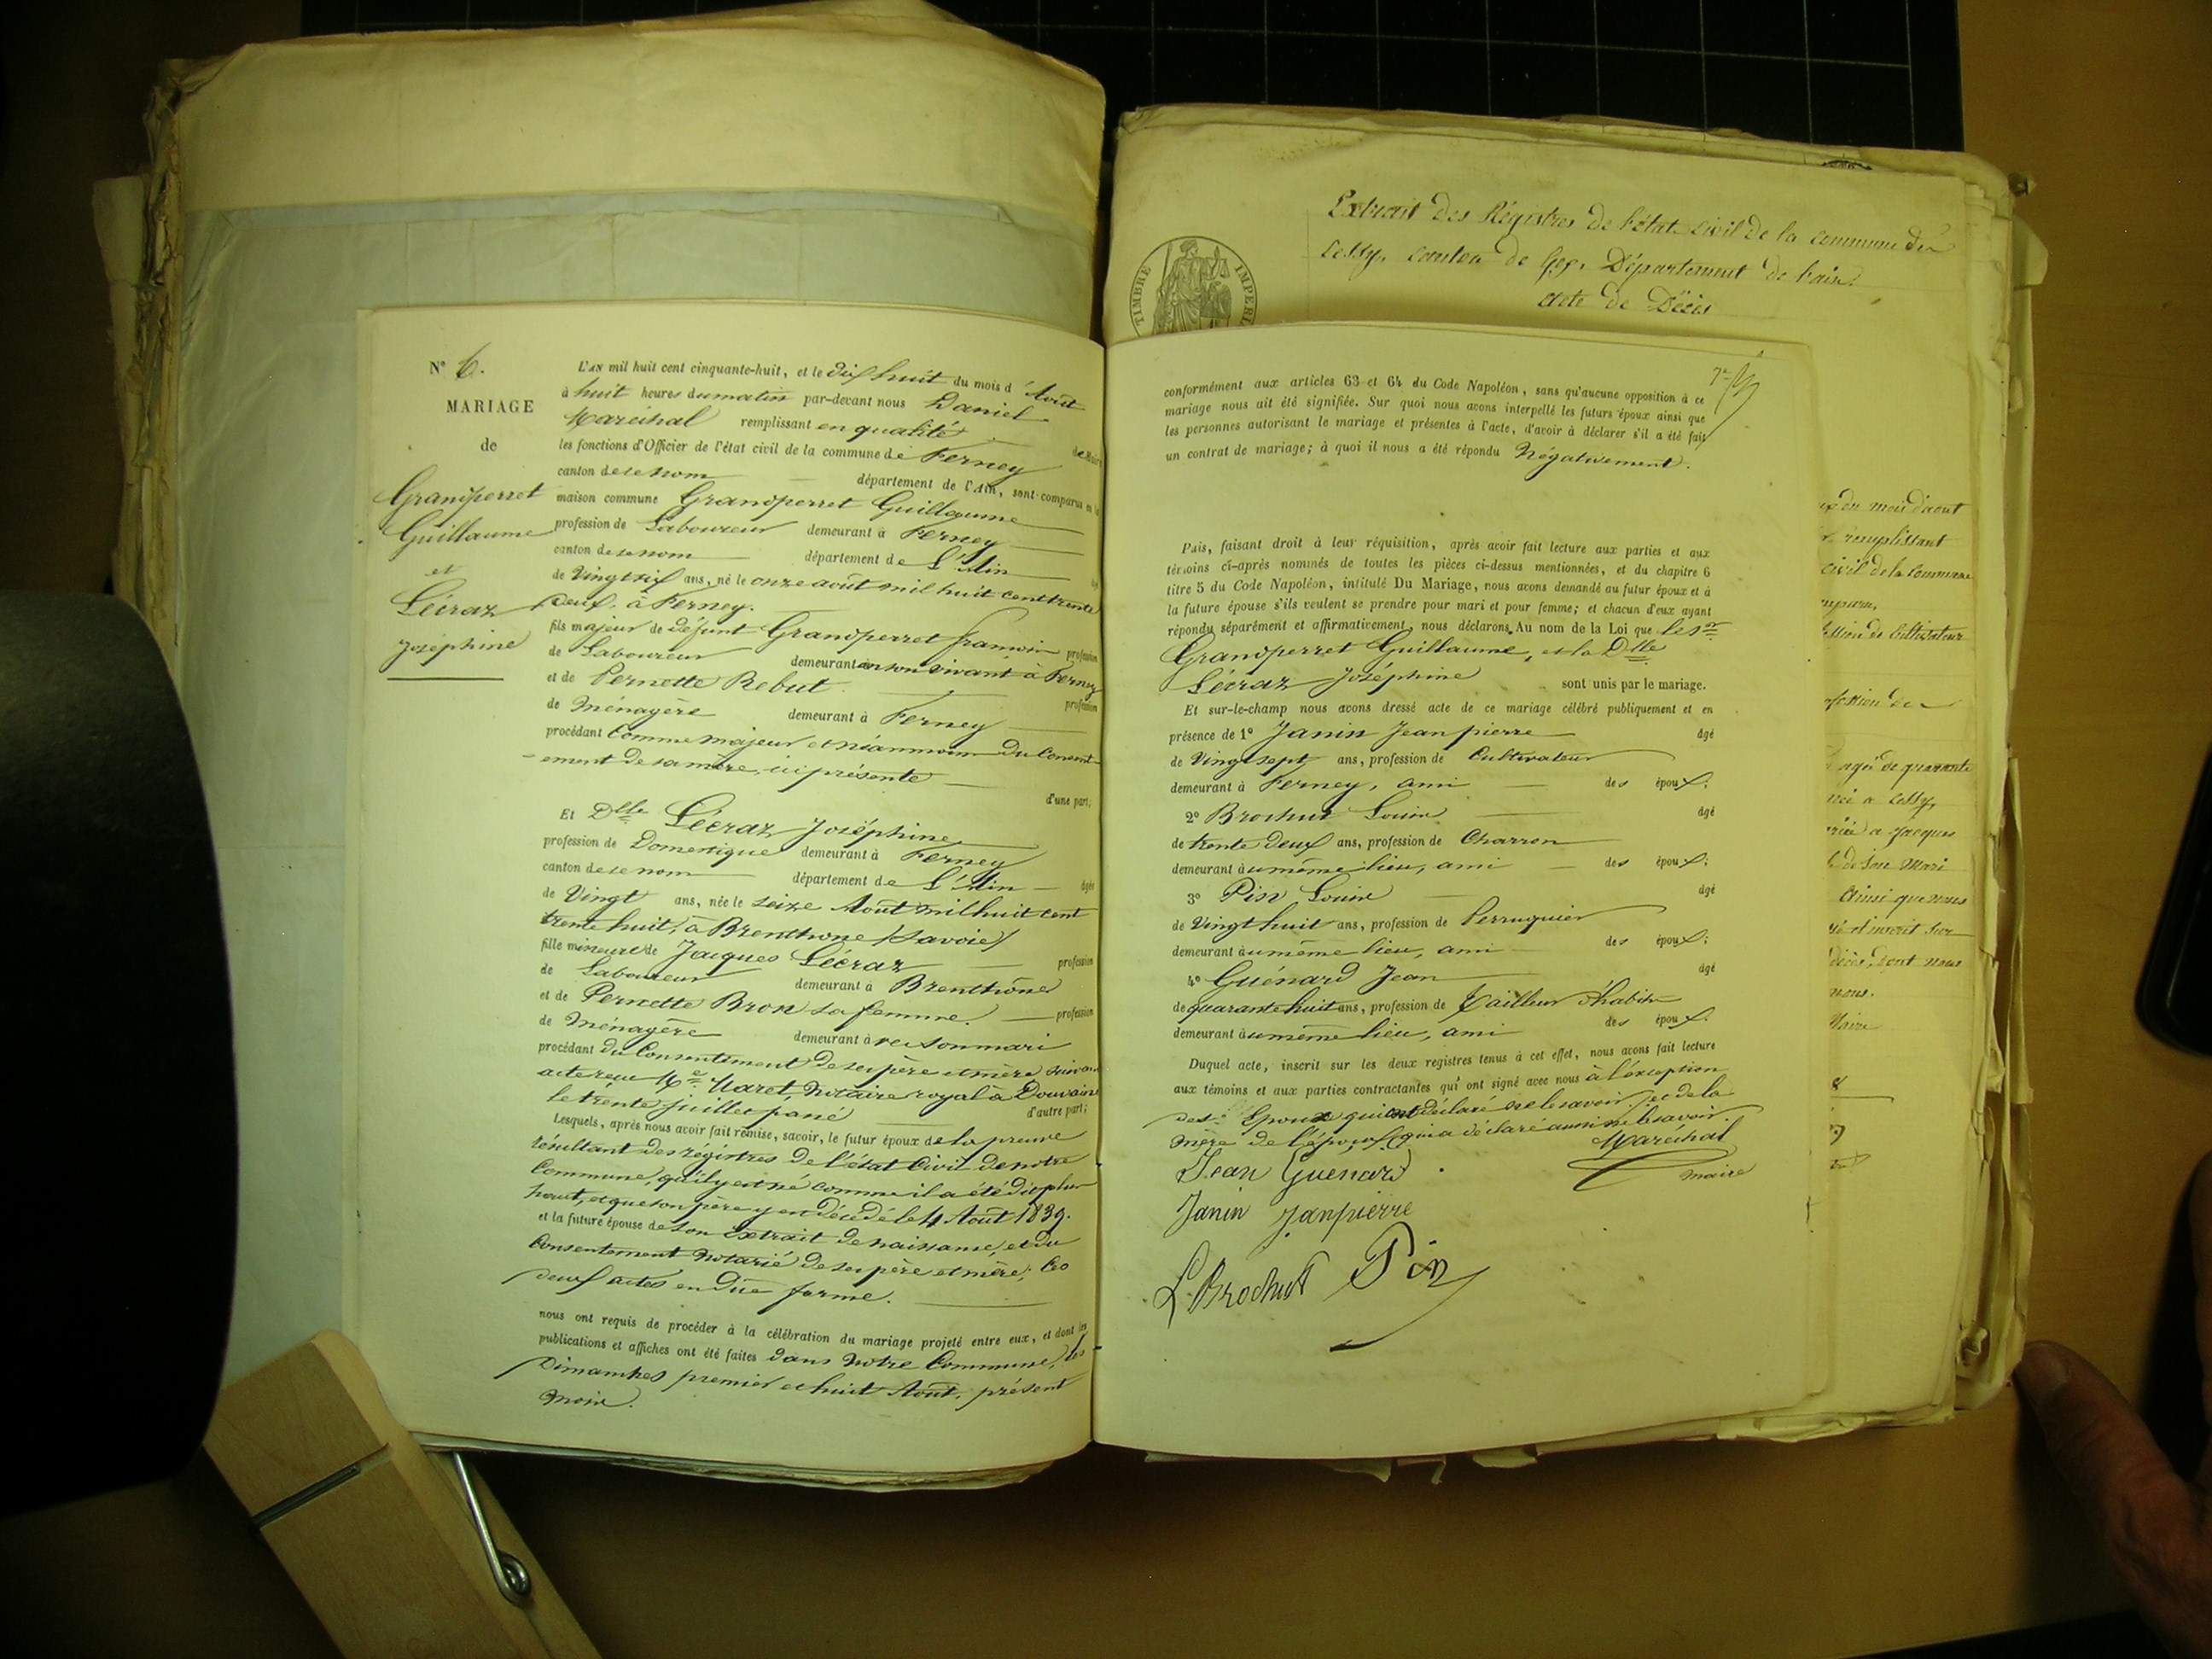 N° 6.
MARIAGE
de
Grandperret
Guillaume
et
Lécraz
Joséphine
L'AN mil huit cent cinquante-huit, et le dix huit du mois d'Août
à huit heures du matin par-devant nous Daniel
Maréchal remplissant en qualité de Maire
les fonctions d'Officier de l'état civil de la commune de Ferney
canton de ce nom département de l'Ain, sont comparus en la
maison commune Grandperret Guillaume
profession de Laboureur demeurant à Ferney
canton de ce nom département de L'Ain
de Vingt six ans, né le onze août mil huit cent trente
deux, à Ferney.
fils majeur de défunt Grandperret françois profession
de Laboureur demeurant en son vivant à Ferney
et de Pernette Rebut. profession
de Ménagère demeurant à Ferney
procédant Comme majeur et néanmoins du Consent-
-ement de sa mère, ici présente
d'une part;
Et Dlle Lécraz Joséphine
profession de Domestique demeurant à Ferney
canton de ce nom département de L'Ain âgée
de Vingt ans, née le seize Août mil huit cent
trente huit, à Brenthone (Savoie)
fille mineure de Jacques Lécraz profession
de Laboureur demeurant à Brenthône
et de Pernette Bron sa femme. profession
de Ménagère demeurant à vec son mari
procédant du Consentement de ses père et mère suivant
acte reçu Me Naret, Notaire royal à Douvaine
le trente juillet passé d'autre part;
Lesquels, après nous avoir fait remise, savoir, le futur époux de la preuve
résultant des régistres de l'état Civil de notre
Commune, qu'il y est né comme il a été dit plus
haut, et que son père y est décédé le 4 Août 1839.
et la future épouse de son Extrait de naissance, et du
Consentement Notarié de ses père et mère; Ces
deux actes en Dûe forme.
nous ont requis de procéder à la célébration du mariage projeté entre eux, et dont les
publications et affiches ont été faites dans Notre Commune, les
Dimanches premier et huit Août, présent
mois.
Extrait des Régistres de l'état civil de la commune de
Cessy, canton de Gex, Département de l'ain.
acte de Décès
TIMBRE IMPERI
conformément aux articles 63 et 64 du Code Napoléon, sans qu'aucune opposition à ce
mariage nous ait été signifiée. Sur quoi nous avons interpellé les futurs époux ainsi que
les personnes autorisant le mariage et présentes à l'acte, d'avoir à déclarer s'il a été fait
un contrat de mariage; à quoi il nous a été répondu Négativement.
Puis, faisant droit à leur réquisition, après avoir fait lecture aux parties et aux
témoins ci-après nommés de toutes les pièces ci-dessus mentionnées, et du chapitre 6
titre 5 du Code Napoléon, intitulé Du Mariage, nous avons demandé au futur époux et à
la future épouse s'ils veulent se prendre pour mari et pour femme; et chacun d'eux ayant
répondu séparément et affirmativement, nous déclarons Au nom de la Loi que le sr
Grandperret Guillaume, et la Dlle
Lécraz Joséphine sont unis par le mariage.
Et sur-le-champ nous avons dressé acte de ce mariage célébré publiquement et en
présence de 1° Janin Jean pierre âgé
de Vingt sept ans, profession de Cultivateur
demeurant à Ferney, ami des époux;
2° Brochut Louis âgé
de trente deux ans, profession de Charron
demeurant au même lieu, ami des époux;
3° Pin Louis âgé
de Vingt huit ans, profession de Perruquier
demeurant au même lieu, ami des époux;
4° Guénard Jean âgé
de quarante huit ans, profession de Tailleur d'habits
demeurant au même lieu, ami des époux.
Duquel acte, inscrit sur les deux registres tenus à cet effet, nous avons fait lecture
aux témoins et aux parties contractantes qui ont signé avec nous à l'exception
des Epoux qui ont déclaré ne le savoir, et de la
mère de l'époux qui a déclaré aussi ne le savoir.
Maréchal
maire
Jean Guenard
Janin Janpierre
L. Brochut Pin
du mois d'aout
remplissant
civil de la commune
de Cultivateur
agée de quarante
née a Cessy,
a Jacques
de son Mari
Ainsi que nous
et inscrit sur
décès, dont nous
nous.
Maire